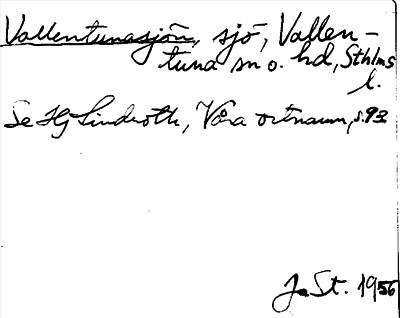 Vallentunasjön, sjö, Vallen-
tuna sn o. hd, Sthlms
l.
Se Hj Lindroth, Våra ortnamn, s. 93
JaSt. 1956